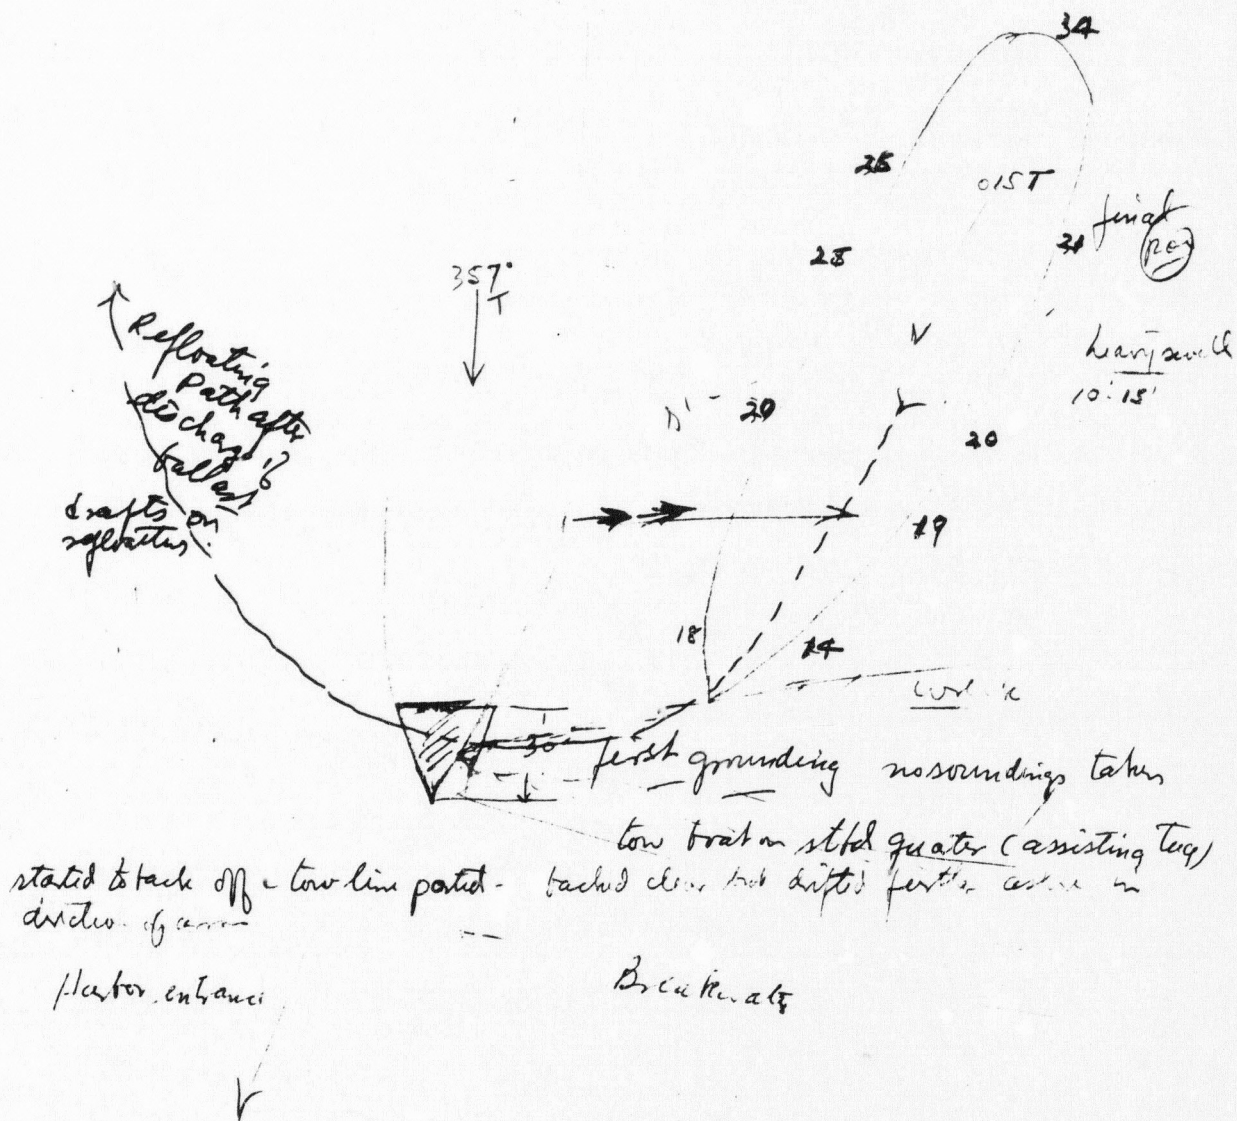 34
25
015T
final
pos
31
28
357°
T
heavy swell
10' 15'
Refloating
path after
discharg
ballast
drafts on
refloating
20
20
19
18
14
30
first grounding no soundings taken
tow boat on stbd quater (assisting Tug)
started to back off - tow line parted - backed clear but drifted further in
direction of
Harbor entrance
Breakwater